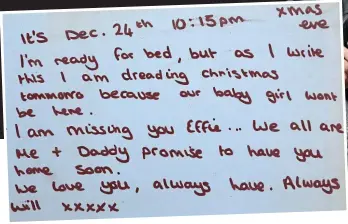 xmas
It's Dec. 24th 10:15pm eve
I'm ready for bed, but as I write
this I am dreading christmas
tommorro because our baby girl wont
be here.
I am missing you Effie... We all are
Me + Daddy promise to have you
home soon.
We love you, always have. Always
will xxxxx